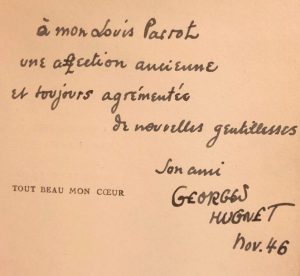 à mon Louis Parrot
une affection ancienne
et toujours agrémentée
de nouvelles gentillesses
son ami
TOUT BEAU MON CŒUR
GEORGES
HUGNET
Nov. 46